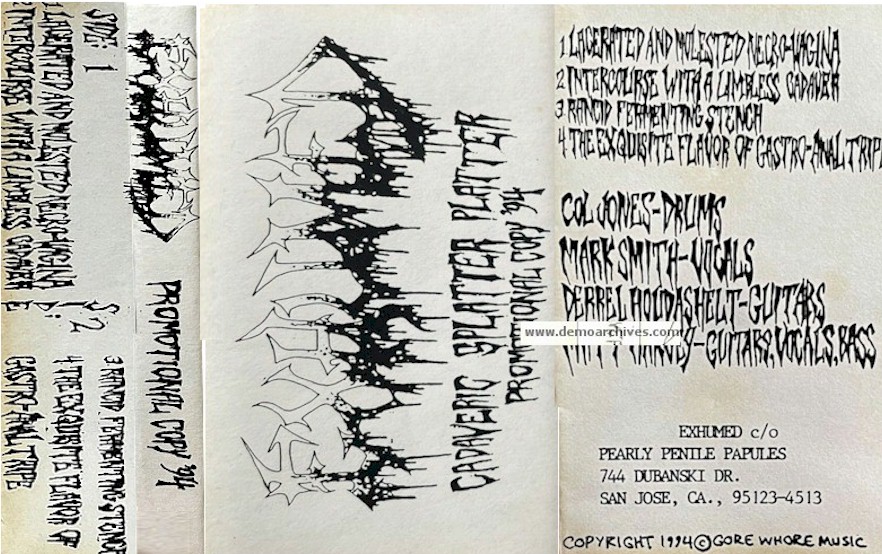 SIDE: 1
1 LACERATED AND MOLESTED NECRO-VAGINA
2 INTERCOURSE WITH A LIMBLESS CADAVER
3 RANCID FERMENTING STENCH
4 THE EXQUISITE FLAVOR OF
GASTRO-ANAL TRIPE
EXHUMED
PROMOTIONAL COPY '94
EXHUMED
CADAVERIC SPLATTER PLATTER
PROMOTIONAL COPY '94
1 LACERATED AND MOLESTED NECRO-VAGINA
2 INTERCOURSE WITH A LIMBLESS CADAVER
3 RANCID FERMENTING STENCH
4 THE EXQUISITE FLAVOR OF GASTRO-ANAL TRIPE
COL JONES-DRUMS
MARK SMITH-VOCALS
DERREL HOUDASHELT-GUITARS
www.demoarchives.com
-GUITARS, VOCALS, BASS
EXHUMED c/o
PEARLY PENILE PAPULES
744 DUBANSKI DR.
SAN JOSE, CA., 95123-4513
COPYRIGHT 1994 © GORE WHORE MUSIC